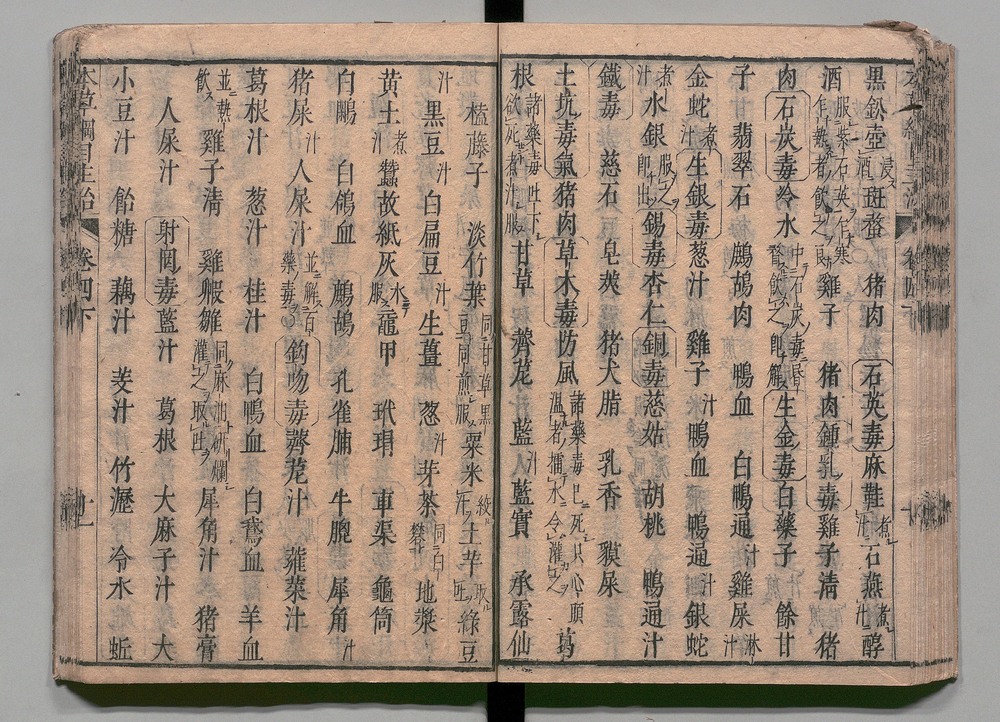 黒鉛壺浸酒 斑蝥 猪肉 石英毒 麻鞋煮汁 石燕煮汁 醇
酒服紫石英乍寒乍熱者飲之良 雞子 猪肉 鍾乳毒 雞子淸 猪
肉 石炭毒 冷水中石炭毒昏瞀飲之即解 生金毒 白藥子 餘甘
子 翡翠石 鷓鴣肉 鴨血 白鴨通汁 雞屎淋汁
金蛇煮汁 生銀毒 葱汁 雞子汁 鴨血 鴨通汁 銀蛇
煮汁 水銀服之即出 錫毒 杏仁 銅毒 慈姑 胡桃 鴨通汁
鐵毒 慈石 皂莢 猪犬脂 乳香 貘屎
土坑毒氣 猪肉 草木毒 防風諸藥毒已死只心頭溫者擂水灌之 葛
根諸藥毒吐下欲死煮汁服 甘草 薺苨 藍汁 藍實 承露仙
榼藤子 淡竹葉同甘草黒豆同煎服 粟米絞汁 土芋取吐 綠豆
汁 黒豆汁 白扁豆汁 生薑 葱汁 芽茶同白礬 地漿
黄土煮汁 蠶故紙灰水服 黿甲 玳瑁 車渠 龜筒
白鷴 白鴿血 鷓鴣 孔雀脯 牛腮 犀角汁
猪屎汁 人屎汁並解百藥毒 鈎吻毒 薺苨汁 蕹菜汁
葛根汁 葱汁 桂汁 白鴨血 白鵞血 羊血
並熱飲 雞子清 雞䱉雛同麻油研爛灌之取吐 犀角汁 猪膏
人屎汁 射罔毒 藍汁 葛根 大麻子汁 大
小豆汁 飴糖 藕汁 芰汁 竹瀝 冷水 蚯
卷四下 十一